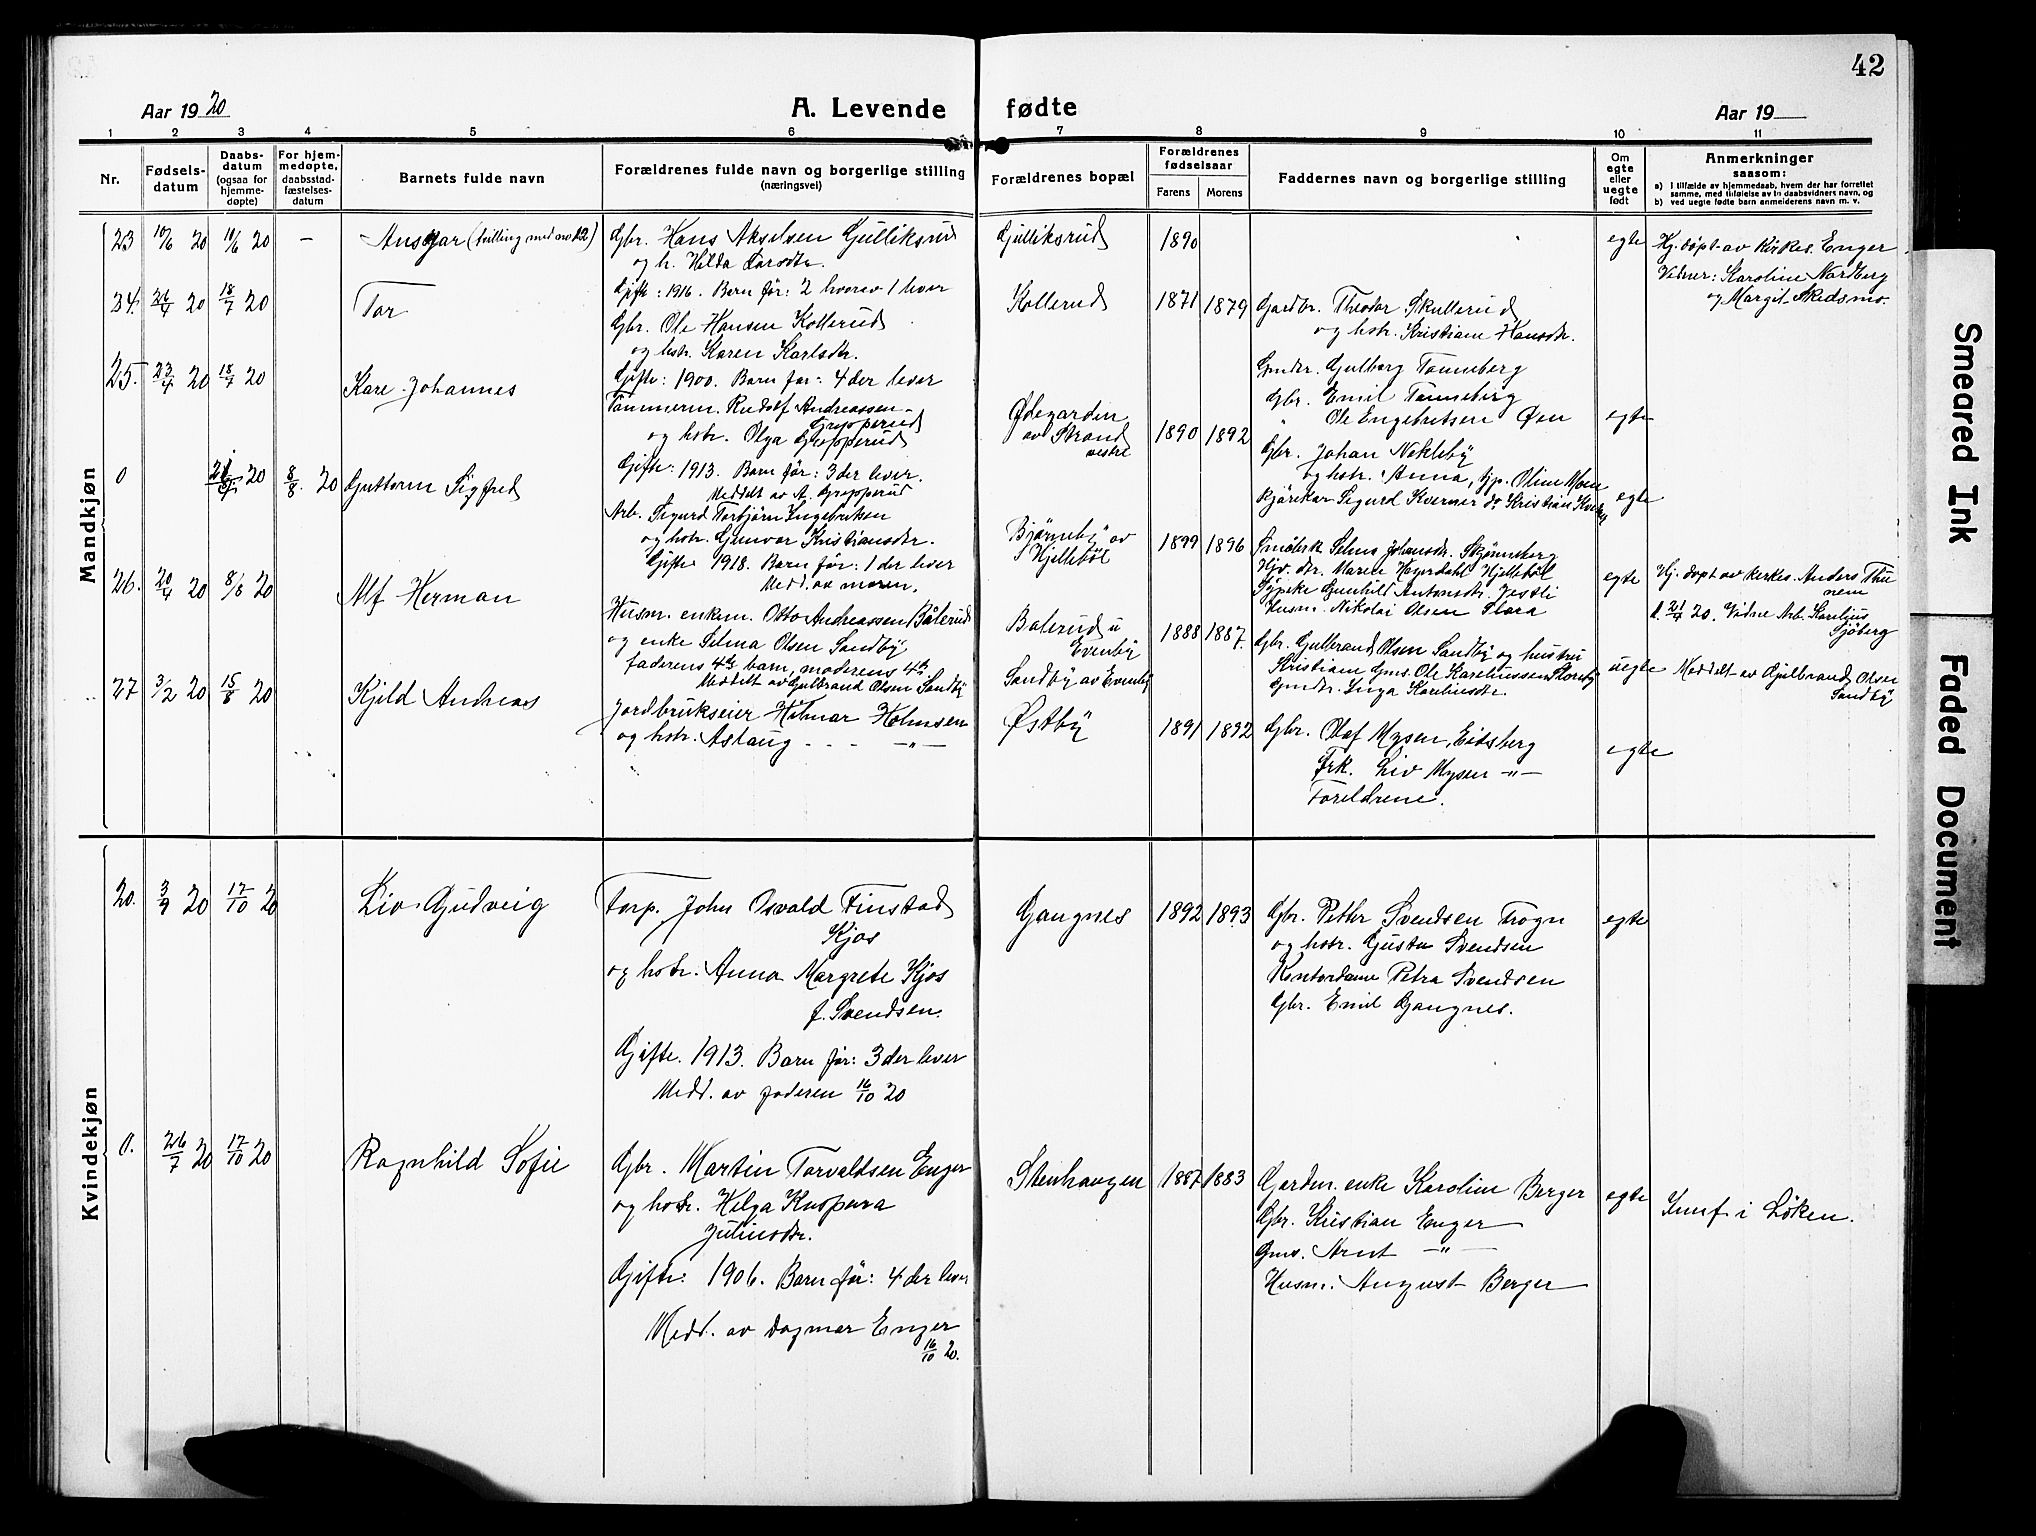 42
Aar 1920
A. Levende fødte
Aar 19
1 2 3 4 5 6 7 8 9 10 11
Nr.
Fødsels-
datum
Daabs-
datum
(ogsaa for
hjemme-
døpte)
For hjem-
medøpte,
daabsstad-
fæstelses-
datum
Barnets fulde navn
Forældrenes fulde navn og borgerlige stilling
(næringsvei)
Forældrenes bopæl
Forældrenes
fødselsaar
Farens Morens
Faddernes navn og borgerlige stilling
Om
egte
eller
uegte
født
Anmerkninger
saasom:
a) i tilfælde av hjemmedaab, hvem der har forrettet
samme, med tilføielse av to daabsvidners navn, og
b) ved uegte fødte barn anmelderens navn m. v.
Mandkjøn
23 10/6 20 10/6 20 –
Ansgar (tvilling med no 22)
Gbr. Hans Akselsen Gulliksrud
og h. Hilda Larsdtr.
Gifte: 1916. Barn før: 2 hvorav 1 lever
Gulliksrud
1890
egte
Hj. døpt av Kirkes. Enger
Vidner: Karoline Nordberg
og Margit Skedsmo.
24. 26/4 20 18/7 20
Tor
Gbr. Ole Hansen Kollerud
og hstr. Karen Karlsdtr.
Gifte: 1900. Barn før: 4 der lever
Kollerud
1871 1879
Gardbr. Theodor Skullerud
og hstr. Kristiane Hansdtr.
Gmdtr. Gulborg Tonneberg
Gbr. Emil Tonneberg
" Ole Engebretsen Øen
egte
25. 23/4 20 18/7 20
Kåre Johannes
Tømmerm. Rudolf Andreassen
Gropperud
og hstr. Olga Gropperud
Gifte: 1913. Barn før: 3 der lever.
Meddelt av A. Gropperud
Ødegarden
av Strand
vestre
1890 1892
Gbr. Johan Nekleby
og hstr. Anna, Gp. Oline Moen
Kjørekar Sigurd Kverner do Kristian
egte
0 20 8/8. 20
Guttorm Sigfred
Arb. Sigurd Torbjørn Ingebriktsen
og hstr. Gunvor Kristiansdtr.
Gifte 1918. Barn før: 1 der lever
Medd. av moren.
Bjørneby av
Hjellebøl
1899 1896
Selma Johansdtr. Skjønneberg
Maren Hagerdahl Hjellebøl
Sypike Gunhild Antonsdtr. Jestli
Husm. Nikolai Olsen Flora
egte
Hj. døpt av kirkes. Anders Thu
nem
d. 21/4 20. Vidne Arb. Karelius
Sjøberg
26. 20/4 20 8/8 20
Alf Herman
Husm. enkem. Otto Andreassen Bålerud
og enke Selma Olsen Sandby
faderens 4de barn, moderens 4de
Meddelt av Gulbrand Olsen Sandby
Bålerud u
Evenby
Sandby av Evenby
1888 1887.
Gbr. Gulbrand Olsen Sandby og hustru
Kristiane Gms. Ole Kareliussen
Gmdtr. Inga Kareliusdtr.
uegte
Meddelt av Gulbrand Olsen
Sandby
27 3/2 20 15/8 20
Kjeld Andreas
Jordbrukseier Hilmar Holmsen
og hstr. Aslaug - - - —"—
Østby
1891 1892
Gbr. Olaf Mysen, Eidsberg
Frk. Liv Mysen —"—
Foreldrene.
egte
Kvindekjøn
20. 3/9 20 17/10 20
Liv Gudveig
Forp. John Osvald Finstad
Kjos
og hstr. Anna Margrete Kjos
f. Svendsen.
Gifte. 1913. Barn før: 3 der lever
Medd. av faderen 16/10 20
Gangnes
1892 1893
Gbr. Petter Svendsen Trogn
og hstr. Gusta Svendsen
Kontordame Petra Svendsen
Gbr. Emil Gangnes.
egte
0. 26/7 20 17/10 20
Ragnhild Sofie
Gbr. Martin Torvaldsen Enger
og hstr. Helga Knopera
Juliusdtr.
Gifte: 1906. Barn før: 4 der lever
Medd. av Dagmar Enger
16/10 20.
Stenhaugen
1887 1883
Gardm. enke Karoline Berger
Gbr. Kristian Enger
Gms. Arnt —"—
Husm. August Berger
egte
Innf i Løken.
Smeared Ink
Faded Document